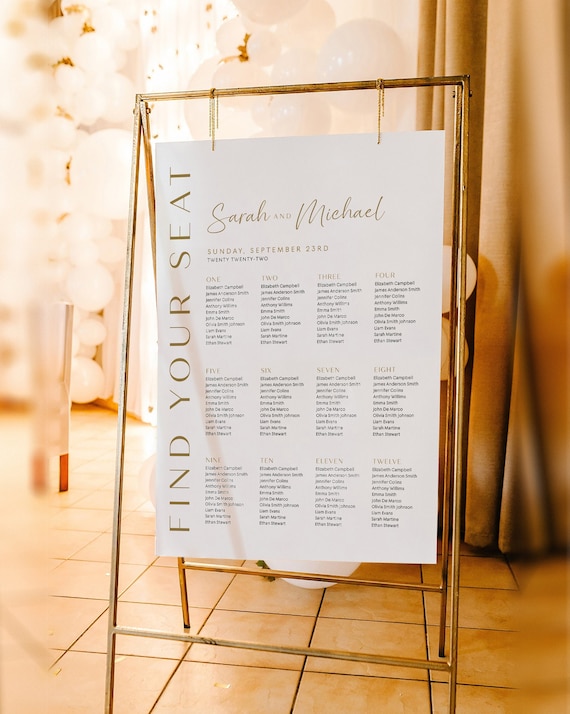 FIND YOUR SEAT
Sarah AND Michael
SUNDAY, SEPTEMBER 23RD
TWENTY TWENTY-TWO
ONE
Elizabeth Campbell
James Anderson Smith
Jennifer Collins
Anthony Willons
Emma Smith
John De Marco
Olivia Smith Johnson
Liam Evans
Sarah Martine
Ethan Stewart
TWO
Elizabeth Campbell
James Anderson Smith
Jennifer Collins
Anthony Willons
Emma Smith
John De Marco
Olivia Smith Johnson
Liam Evans
Sarah Martine
Ethan Stewart
THREE
Elizabeth Campbell
James Anderson Smith
Jennifer Collins
Anthony Willons
Emma Smith
John De Marco
Olivia Smith Johnson
Liam Evans
Sarah Martine
Ethan Stewart
FOUR
Elizabeth Campbell
James Anderson Smith
Jennifer Collins
Anthony Willons
Emma Smith
John De Marco
Olivia Smith Johnson
Liam Evans
Sarah Martine
Ethan Stewart
FIVE
Elizabeth Campbell
James Anderson Smith
Jennifer Collins
Anthony Willons
Emma Smith
John De Marco
Olivia Smith Johnson
Liam Evans
Sarah Martine
SIX
Elizabeth Campbell
James Anderson Smith
Jennifer Collins
Anthony Willons
Emma Smith
John De Marco
Olivia Smith Johnson
Sarah Martine
Ethan Stewart
SEVEN
Elizabeth Campbell
James Anderson Smith
Jennifer Collins
Anthony Willons
Emma Smith
John De Marco
Olivia Smith Johnson
Sarah Martine
Ethan Stewart
EIGHT
Elizabeth Campbell
James Anderson Smith
Jennifer Collins
Anthony Willons
Emma Smith
John De Marco
Olivia Smith Johnson
Sarah Martine
Ethan Stewart
NINE
Elizabeth Campbell
James Anderson Smith
Jennifer Collins
Anthony Willons
Emma Smith
John De Marco
Olivia Smith Johnson
Liam Evans
Sarah Martine
Ethan Stewart
TEN
Elizabeth Campbell
James Anderson Smith
Jennifer Collins
Anthony Willons
Emma Smith
John De Marco
Olivia Smith Johnson
Liam Evans
Sarah Martine
Ethan Stewart
ELEVEN
Elizabeth Campbell
James Anderson Smith
Jennifer Collins
Anthony Willons
Emma Smith
John De Marco
Olivia Smith Johnson
Liam Evans
Sarah Martine
Ethan Stewart
TWELVE
Elizabeth Campbell
James Anderson Smith
Jennifer Collins
Anthony Willons
Emma Smith
John De Marco
Olivia Smith Johnson
Liam Evans
Sarah Martine
Ethan Stewart